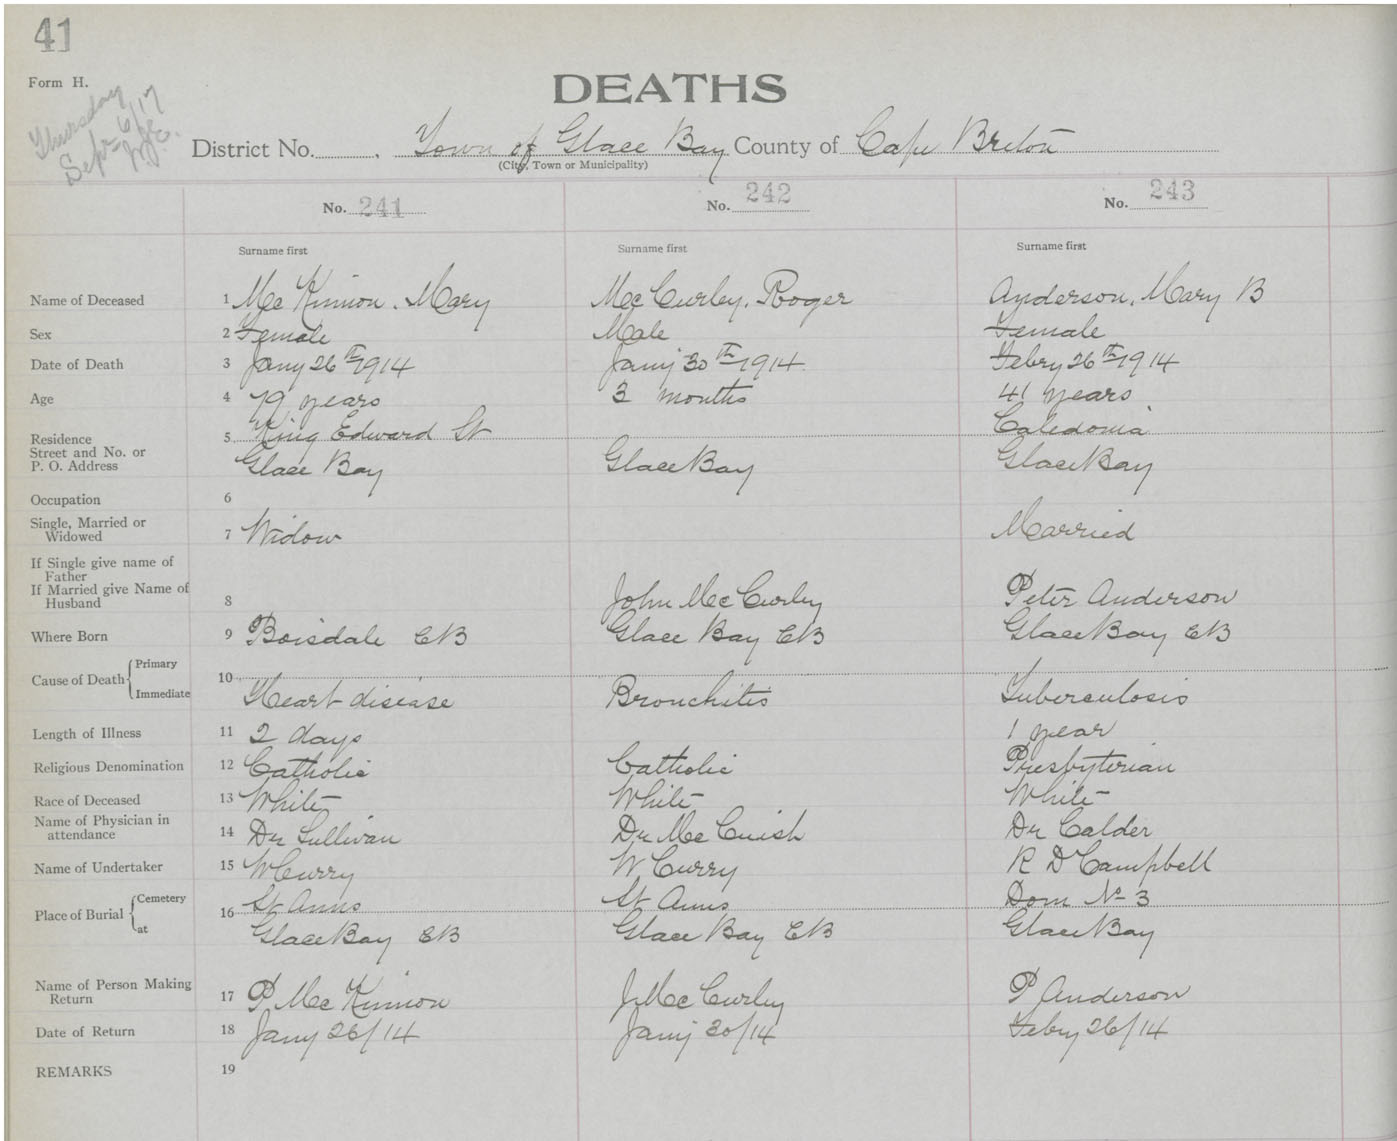 41
Form H.
Thursday
Sep 6/17
DEATHS
District No. Town of Glace Bay County of Cape Breton
(City, Town or Municipality)
No. 241 No. 242 No. 243
Surname first Surname first Surname first
Name of Deceased 1 Mc Kinnon, Mary Mc Curley, Roger Anderson, Mary B
Sex 2 Female Male Female
Date of Death 3 Jany 26th 1914 Jany 30th 1914 Febry 26th 1914
Age 4 79 years 3 months 41 years
5 King Edward St Caledonia
Residence
Street and No. or
P. O. Address Glace Bay Glace Bay Glace Bay
Occupation 6
Single, Married or
Widowed 7 Widow Married
If Single give name of
Father
If Married give Name of
Husband 8 John Mc Curley Peter Anderson
Where Born 9 Boisdale CB Glace Bay CB Glace Bay CB
Cause of Death Primary 10
Immediate Heart disease Bronchitis Tuberculosis
Length of Illness 11 2 days 1 year
Religious Denomination 12 Catholic Catholic Presbyterian
Race of Deceased 13 White White White
Name of Physician in
attendance 14 Dr Sullivan Dr Mc Cuish Dr Calder
Name of Undertaker 15 W Curry W Curry R D Campbell
Place of Burial Cemetery 16 St Anns St Anns Dom No 3
at Glace Bay CB Glace Bay CB Glace Bay
Name of Person Making
Return 17 P Mc Kinnon J Mc Curley P Anderson
Date of Return 18 Jany 26/14 Jany 30/14 Febry 26/14
REMARKS 19